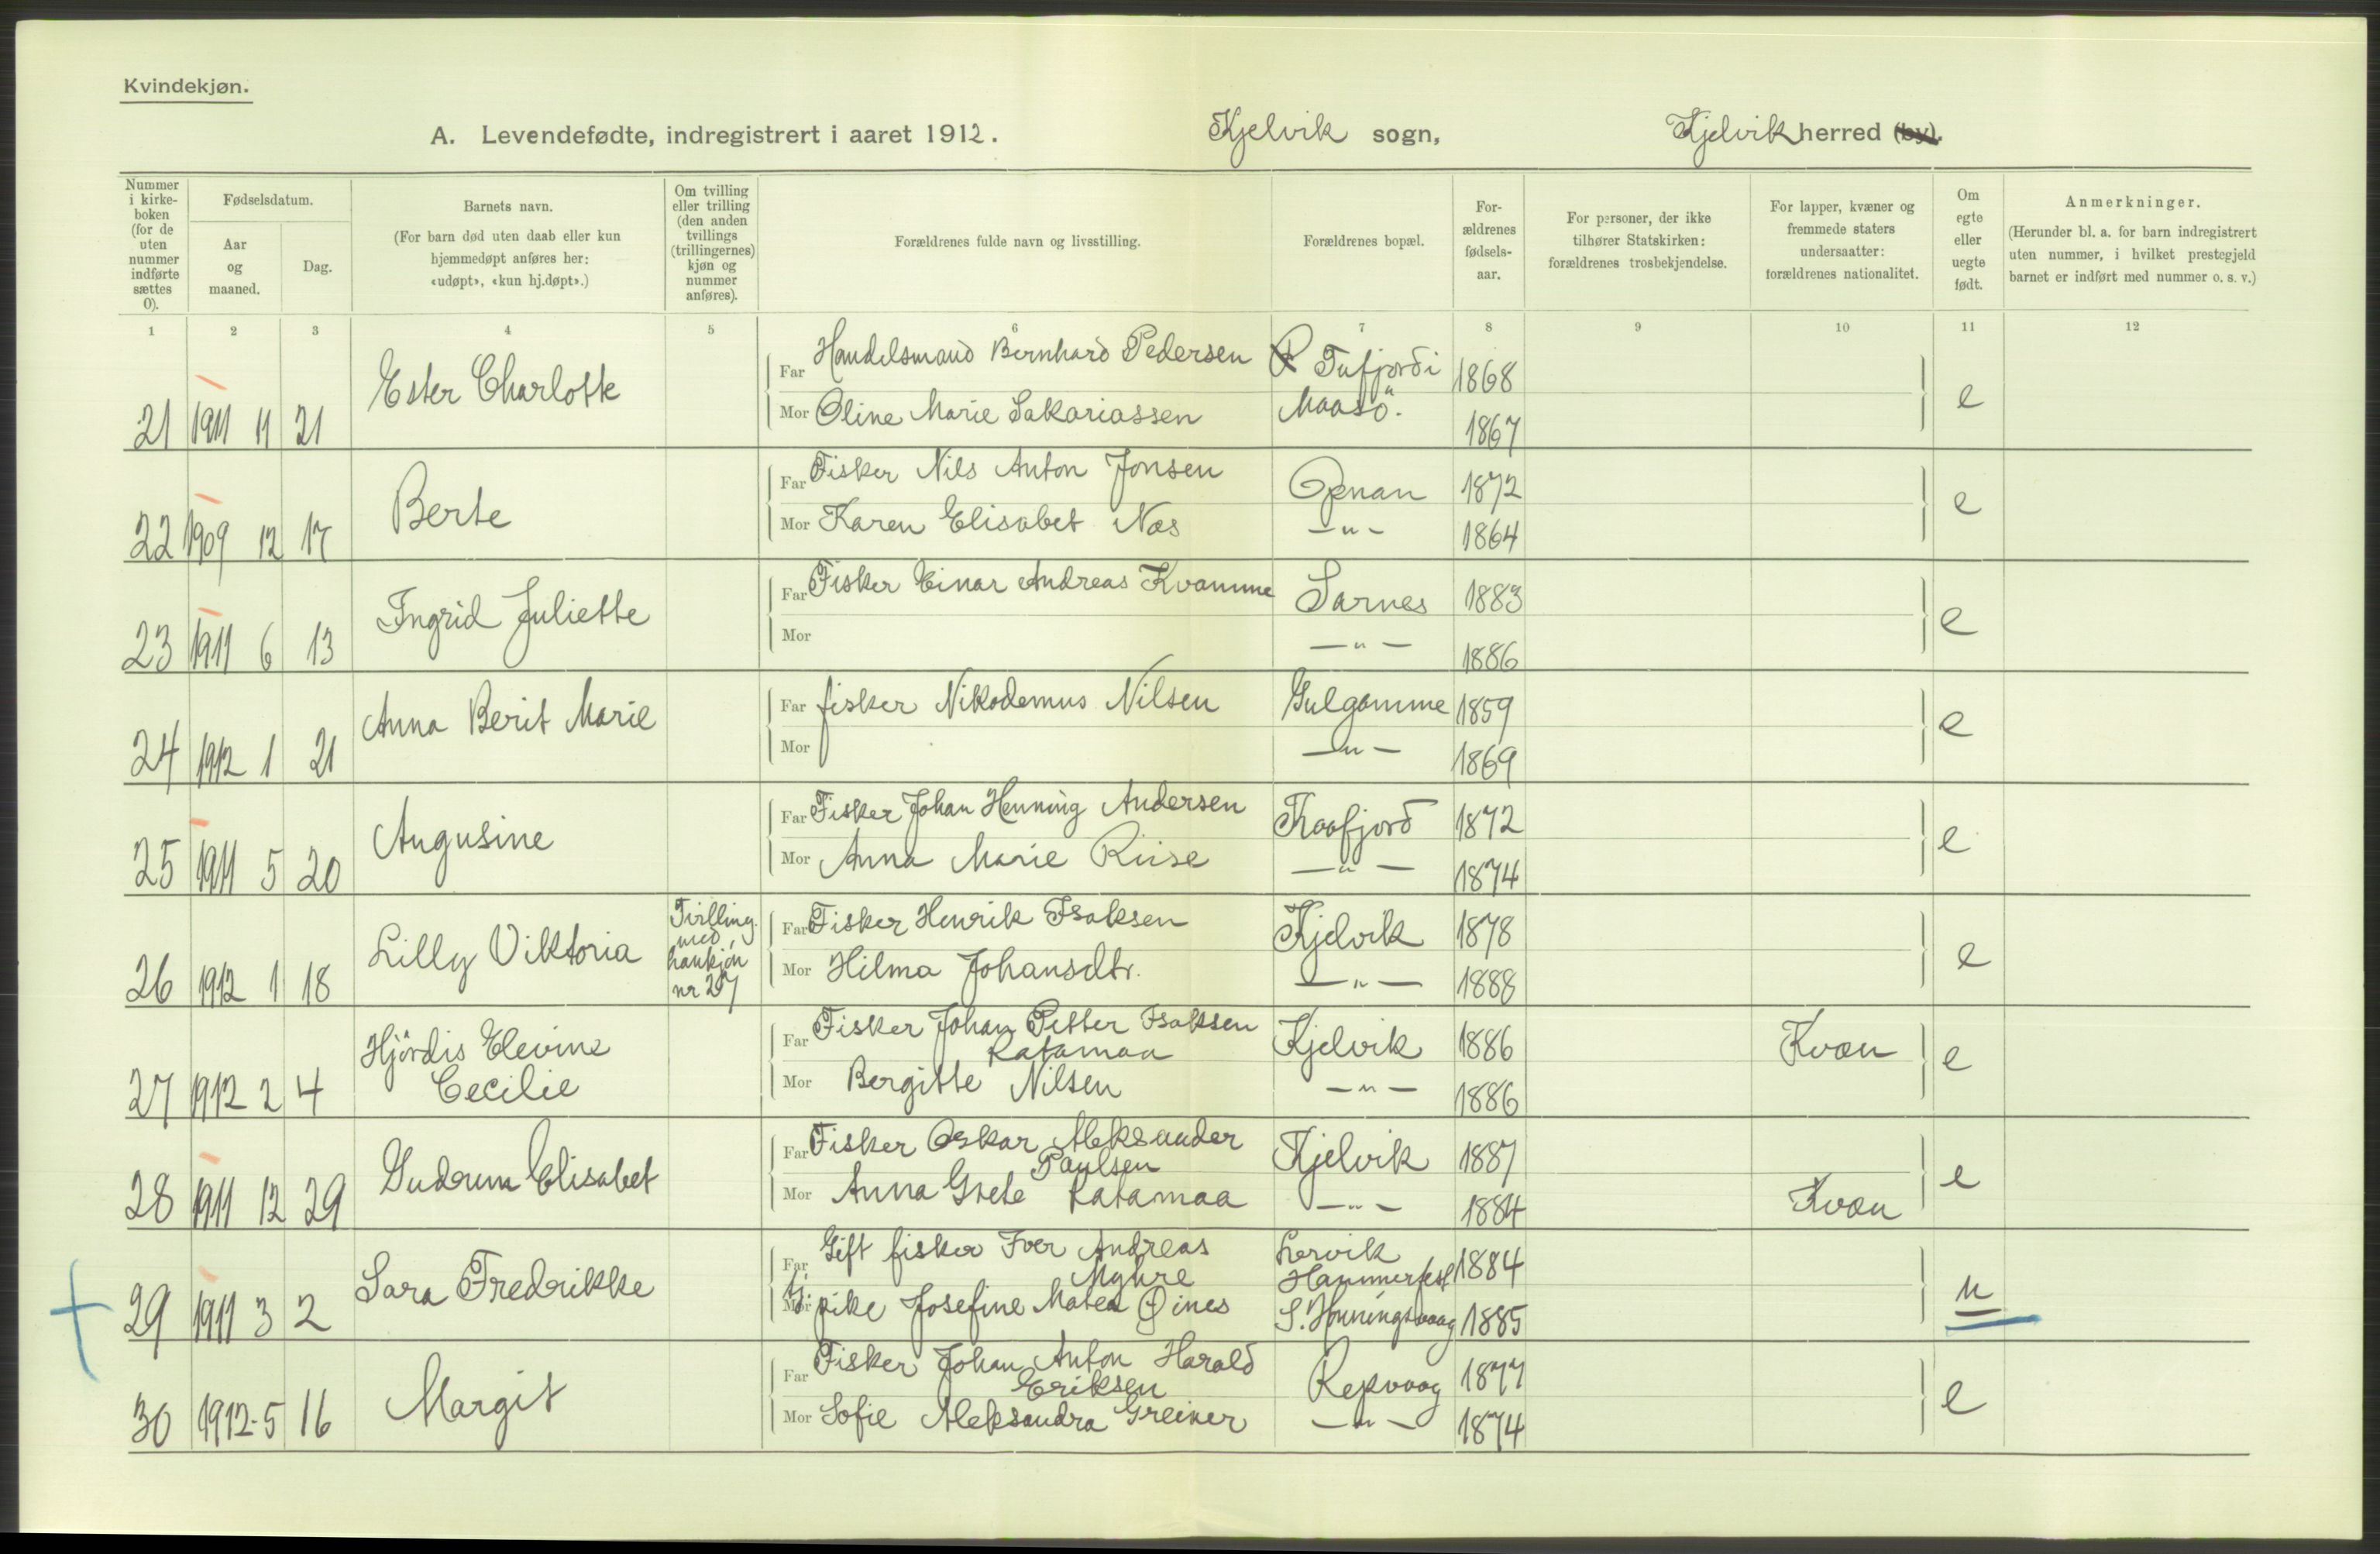 Kvindekjøn.
A. Levendefødte, indregistrert i aaret 1912. Kjelvik sogn, Kjelvik herred (by).
Nummer i kirke-boken (for de uten nummer indførte sættes 0).
Fødselsdatum.
Aar og maaned.
Dag.
Barnets navn.
(For barn død uten daab eller kun hjemmedøpt anføres her: «udøpt», «kun hj.døpt».)
Om tvilling eller trilling (den anden tvillings (trillingernes) kjøn og nummer anføres).
Forældrenes fulde navn og livsstilling.
Forældrenes bopæl.
For-ældrenes fødsels-aar.
For personer, der ikke tilhører Statskirken: forældrenes trosbekjendelse.
For lapper, kvæner og fremmede staters undersaatter: forældrenes nationalitet.
Om egte eller uegte født.
Anmerkninger.
(Herunder bl. a. for barn indregistrert uten nummer, i hvilket prestegjeld barnet er indført med nummer o. s. v.)
1 2 3 4 5 6 7 8 9 10 11 12
21 1911 11 21 Ester Charlotte Far Handelsmand Bernhard Pedersen Tufjord i 1868 e
Mor Oline Marie Sakariassen Maasö. 1867
22 1909 12 17 Berte Far Fisker Nils Anton Jonsen Opnan 1872 e
Mor Karen Elisabet Næs —"— 1864
23 1911 6 13 Ingrid Juliette Far Fisker Einar Andreas Kvamme Sarnes 1883 e
Mor —"— 1886
24 1912 1 21 Anna Berit Marie Far fisker Nikodemus Nilsen Gulgamme 1859 e
Mor —"— 1869
25 1911 5 20 Augusine Far Fisker Johan Henning Andersen Kaafjord 1872 e
Mor Anna Marie Riise —"— 1874
26 1912 1 18 Lilly Viktoria Tvilling med hankjøn nr 27 Far Fisker Henrik Isaksen Kjelvik 1878 e
Mor Hilma Johansdtr. —"— 1888
27 1912 2 4 Hjördis Elevine Cecilie Far Fisker Johan Petter Isaksen Ratamaa Kjelvik 1886 Kvæn e
Mor Bergitte Nilsen —"— 1886
28 1911 12 29 Gudrun Elisabet Far Fisker Oskar Aleksander Paulsen Kjelvik 1887 e
Mor Anna Grete Ratamaa —"— 1884 Kvæn
29 1911 3 2 Sara Fredrikke Far Gift fisker Iver Andreas Myhre Lervik Hammerfest 1884 u
Mor pike Josefine Matea Øines S. Honningsvaag 1885
30 1912 5 16 Margit Far Fisker Johan Anton Harald Eriksen Repvaag 1877 e
Mor Sofie Aleksandra Greiner —"— 1874